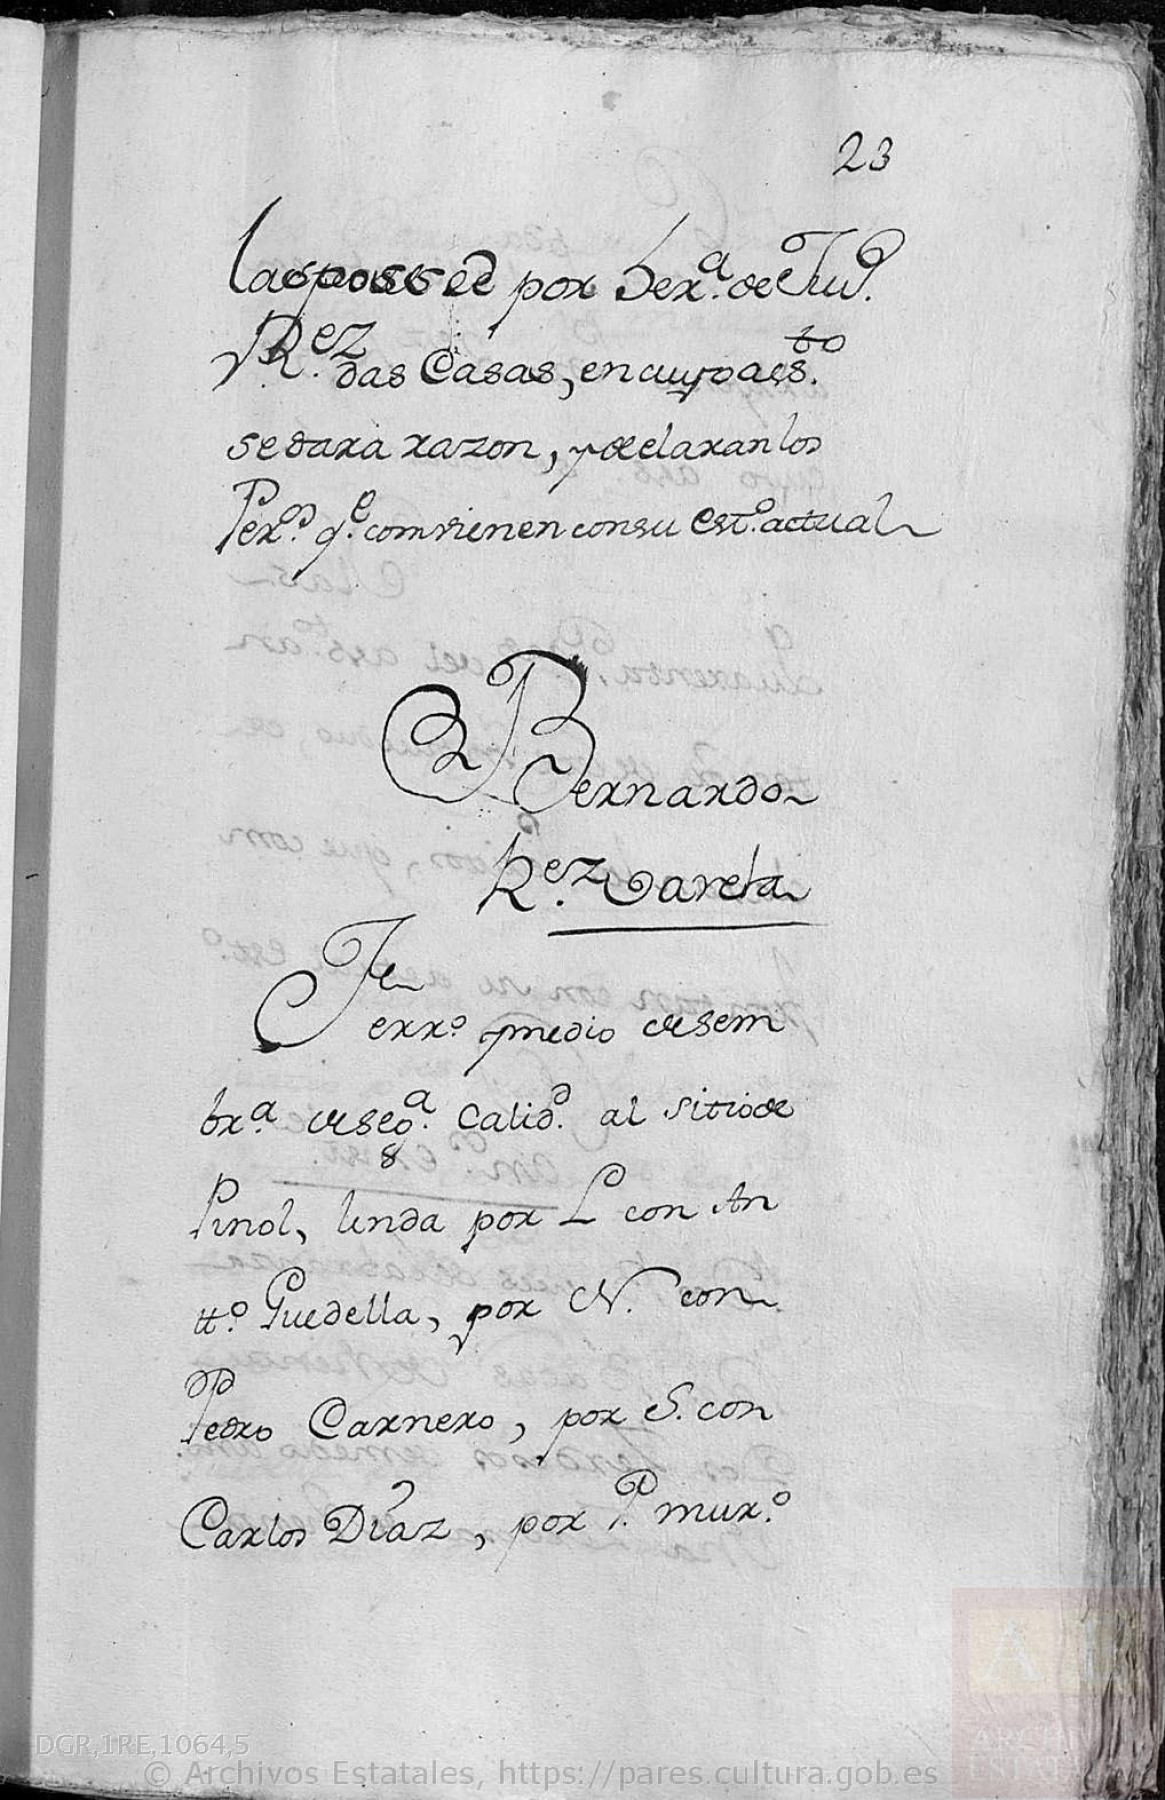 23
las posseé por herª. de Juº.
R.ez das Casas, en cuyo asº.to
se dara razon, y declaran los
Perºs. q.e combienen con su est.º actual
Bernardo
R.ez Varela
Ferrº. y medio de sem
brª. de seg.ª Calid.d al sitio de
8
Pinol, linda por L con An
tt.º Puedella, por N. con
Pedro Carnero, por S. con
Carlos Diaz, por P. mur.º
DGR,1RE,1064,5
© Archivos Estatales, https://pares.cultura.gob.es